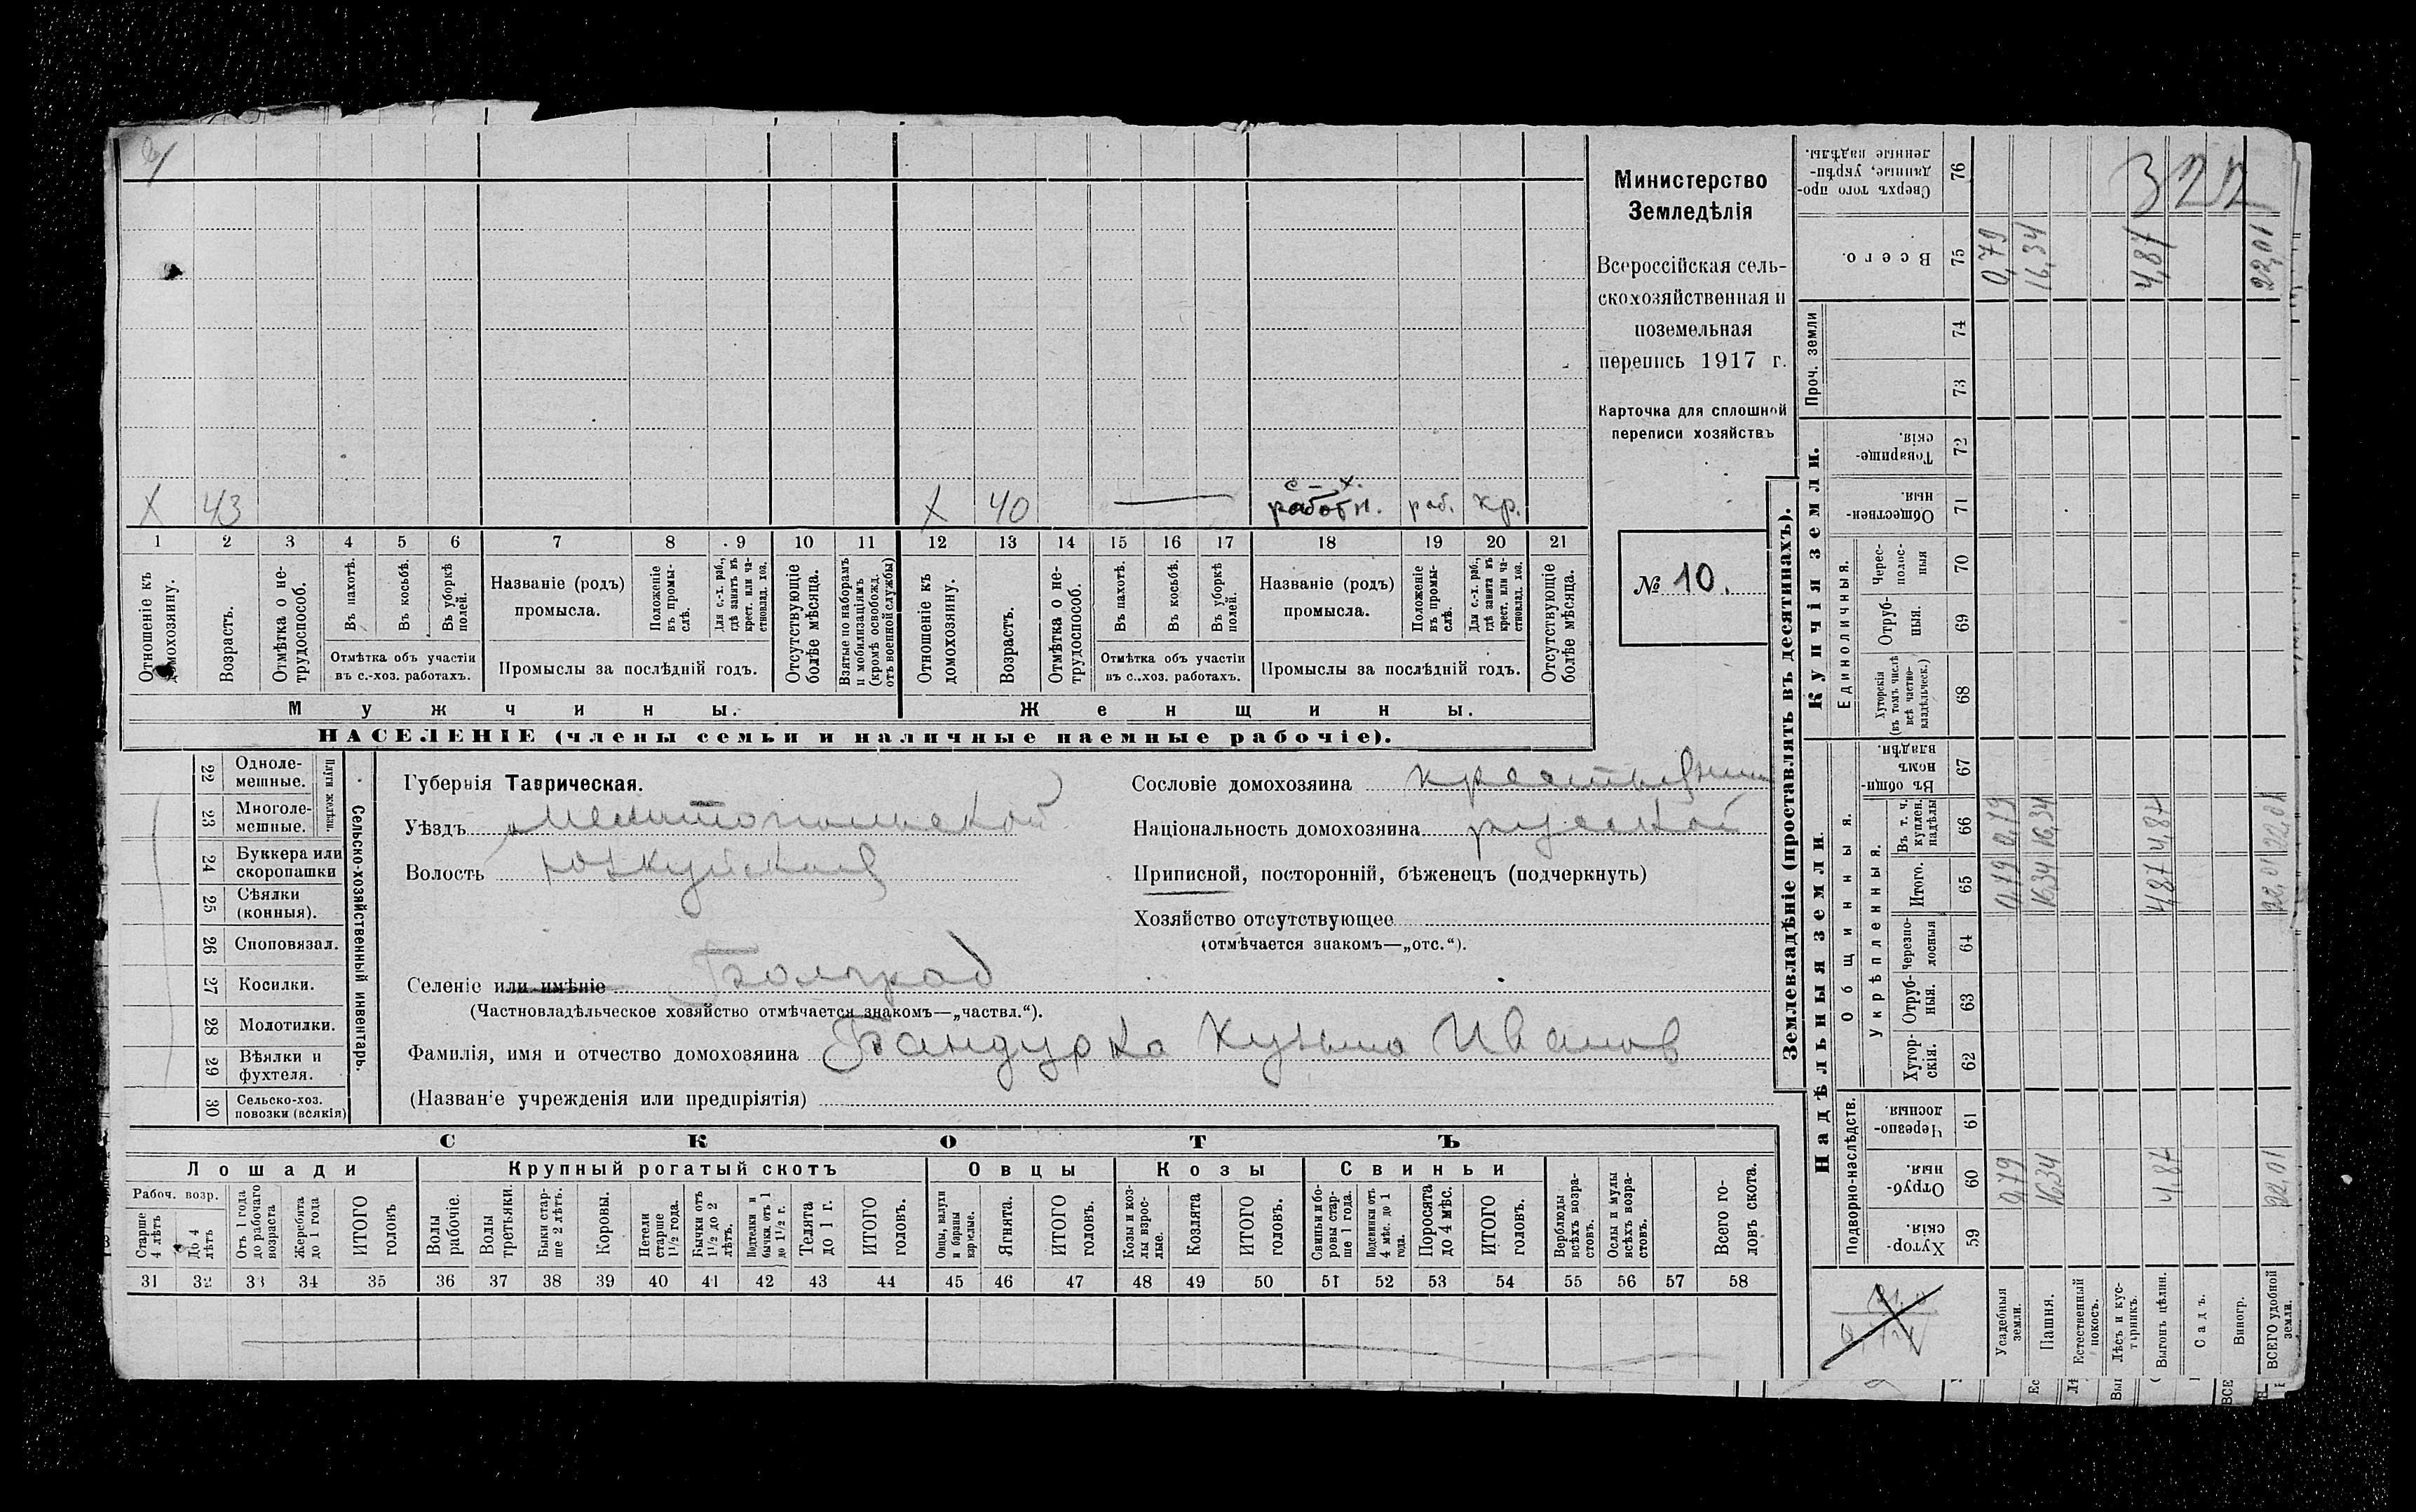 Министерство
Земледѣлія
Всероссійская сель-
скохозяйственная и
поземельная
перепись 1917 г.
Карточка для сплошной
переписи хозяйствъ
№ 10.
X 43 X 40 — с-х.
работн. раб. кр.
1 2 3 4 5 6 7 8 9 10 11 12 13 14 15 16 17 18 19 20 21
Отношеніе къ домохозяину.
Возрастъ.
Отмѣтка о не-трудоспособ.
Въ пахотѣ.
Въ косьбѣ.
Въ уборкѣ полей.
Отмѣтка объ участіи
въ с.-хоз. работахъ.
Названіе (родъ)
промысла.
Положеніе въ промы-слѣ.
Для с.-х. раб., гдѣ занятъ въ крест. или ча-стновлад. хоз.
Промыслы за послѣдній годъ.
Отсутствующіе болѣе мѣсяца.
Взятые по наборамъ и мобилизаціямъ (кромѣ освобожд. отъ военной службы)
Отношеніе къ домохозяину.
Возрастъ.
Отмѣтка о не-трудоспособ.
Въ пахотѣ.
Въ косьбѣ.
Въ уборкѣ полей.
Отмѣтка объ участіи
въ с.-хоз. работахъ.
Названіе (родъ)
промысла.
Положеніе въ промы-слѣ.
Для с.-х. раб., гдѣ занята въ крест. или ча-стновлад. хоз.
Промыслы за послѣдній годъ.
Отсутствующіе болѣе мѣсяца.
Мужчины. Женщины.
НАСЕЛЕНІЕ (члены семьи и наличные наемные рабочіе).
22 Одноле-мешные.
23 Многоле-мешные.
Плуги желѣзн.
24 Буккера или скоропашки
25 Сѣялки (конныя).
26 Сноповязал.
27 Косилки.
28 Молотилки.
29 Вѣялки и фухтеля.
30 Сельско-хоз. повозки (всякія)
Сельско-хозяйственный инвентарь.
Губернія Таврическая.
Уѣздъ Мелитопольской
Волость
Селеніе или имѣніе Болград
(Частновладѣльческое хозяйство отмѣчается знакомъ—„частвл.“).
Фамилія, имя и отчество домохозяина Бандурка Кузьма Иванов
(Названіе учрежденія или предпріятія)
Сословіе домохозяина крестьянин
Національность домохозяина русской
Приписной, посторонній, бѣженецъ (подчеркнуть)
Хозяйство отсутствующее
(отмѣчается знакомъ—„отс.“).
СКОТЪ
Лошади Крупный рогатый скотъ Овцы Козы Свиньи
Рабоч. возр.
Старше 4 лѣтъ
До 4 лѣтъ
Отъ 1 года до рабочаго возраста
Жеребята до 1 года
ИТОГО головъ
Волы рабочіе.
Волы третьяки.
Быки стар-ше 2 лѣтъ.
Коровы.
Нетели старше 1½ года.
Бычки отъ 1½ до 2 лѣтъ.
Подтелки и бычки, отъ 1 до 1½ г.
Телята до 1 г.
ИТОГО головъ.
Овцы, валухи и бараны взрослые.
Ягнята.
ИТОГО головъ.
Козы и коз-лы взрос-лые.
Козлята
ИТОГО головъ.
Свиньи и бо-ровы стар-ше 1 года.
Подсвинки отъ 4 мѣс. до 1 года.
Поросята до 4 мѣс.
ИТОГО головъ.
Верблюды всѣхъ возра-стовъ.
Ослы и мулы всѣхъ возра-стовъ.
Всего го-ловъ скота.
31 32 33 34 35 36 37 38 39 40 41 42 43 44 45 46 47 48 49 50 51 52 53 54 55 56 57 58
Землевладѣніе (проставлять въ десятинахъ).
Надѣльныя земли.
Купчія земли.
Проч. земли
Подворно-наслѣдств.
Общинныя.
Укрѣпленныя.
Единоличныя.
Хутор-скія. 59
Отруб-ныя. 60
Черезпо-лосныя. 61
Хутор-скія. 62
Отруб-ныя. 63
Черезпо-лосныя 64
Итого. 65
Въ т. ч. куплен. надѣлы 66
Въ общин-номъ владѣн. 67
Хуторскія (въ томъ числѣ всѣ частно-владѣльческ.) 68
Отруб-ныя. 69
Черес-полос-ныя 70
Обществен-ныя. 71
Товарище-скія. 72
73
74
Всего. 75
Сверхъ того про-данные, укрѣп-ленные надѣлы. 76
Усадебныя земли. 0,79 0,79 0,79 0,79
Пашня. 16,34 16,34 16,34 16,34
Естественный покосъ.
Лѣсъ и кус-тарникъ.
Выгонъ цѣлин. 4,87 4,87 4,87 4,87
Садъ.
Виногр.
ВСЕГО удобной земли. 22,01 22,01 22,01 22,01
322